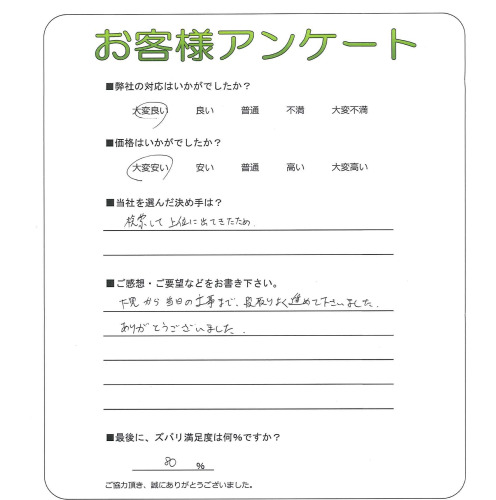 お客様アンケート
■弊社の対応はいかがでしたか？
大変良い 良い 普通 不満 大変不満
■価格はいかがでしたか？
大変安い 安い 普通 高い 大変高い
■当社を選んだ決め手は？
検索して上位に出てきたため.
■ご感想・ご要望などをお書き下さい。
下見から当日の工事まで、段取りよく進めて下さいました.
ありがとうございました.
■最後に、ズバリ満足度は何%ですか？
80 %
ご協力頂き、誠にありがとうございました。